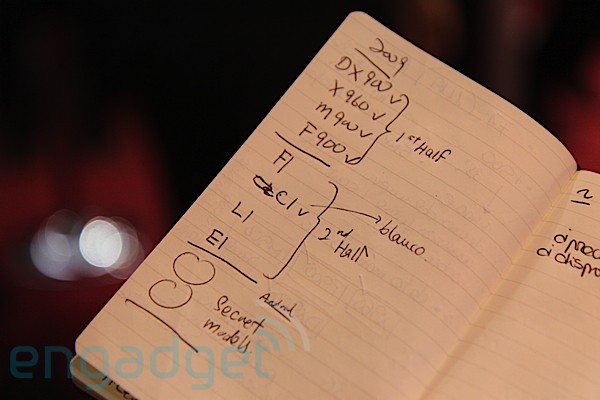 2009
DX900 v
X960 v
M900 v
F900 v
1st Half
F1
C1 v
L1
E1
2nd Half
blanco
Android
Secret
models.
engadget